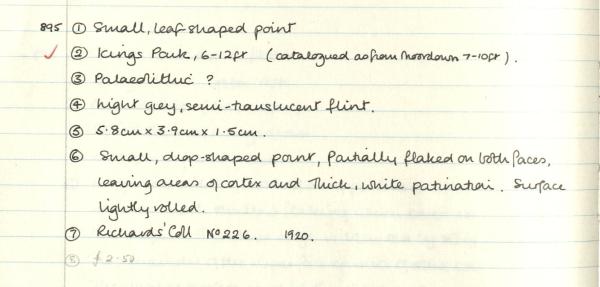 895 ① Small, leaf-shaped point
✓ ② Kings Park, 6-12ft (catalogued as from Moordown 7-10ft).
③ Palaeolithic ?
④ Light grey, semi-translucent flint.
⑤ 5.8cm x 3.9cm x 1.5cm.
⑥ Small, drop-shaped point, Partially flaked on both faces,
leaving areas of cortex and thick, white patination. Surface
lightly rolled.
⑦ Richards' Coll No 226. 1920.
⑧ £2.50